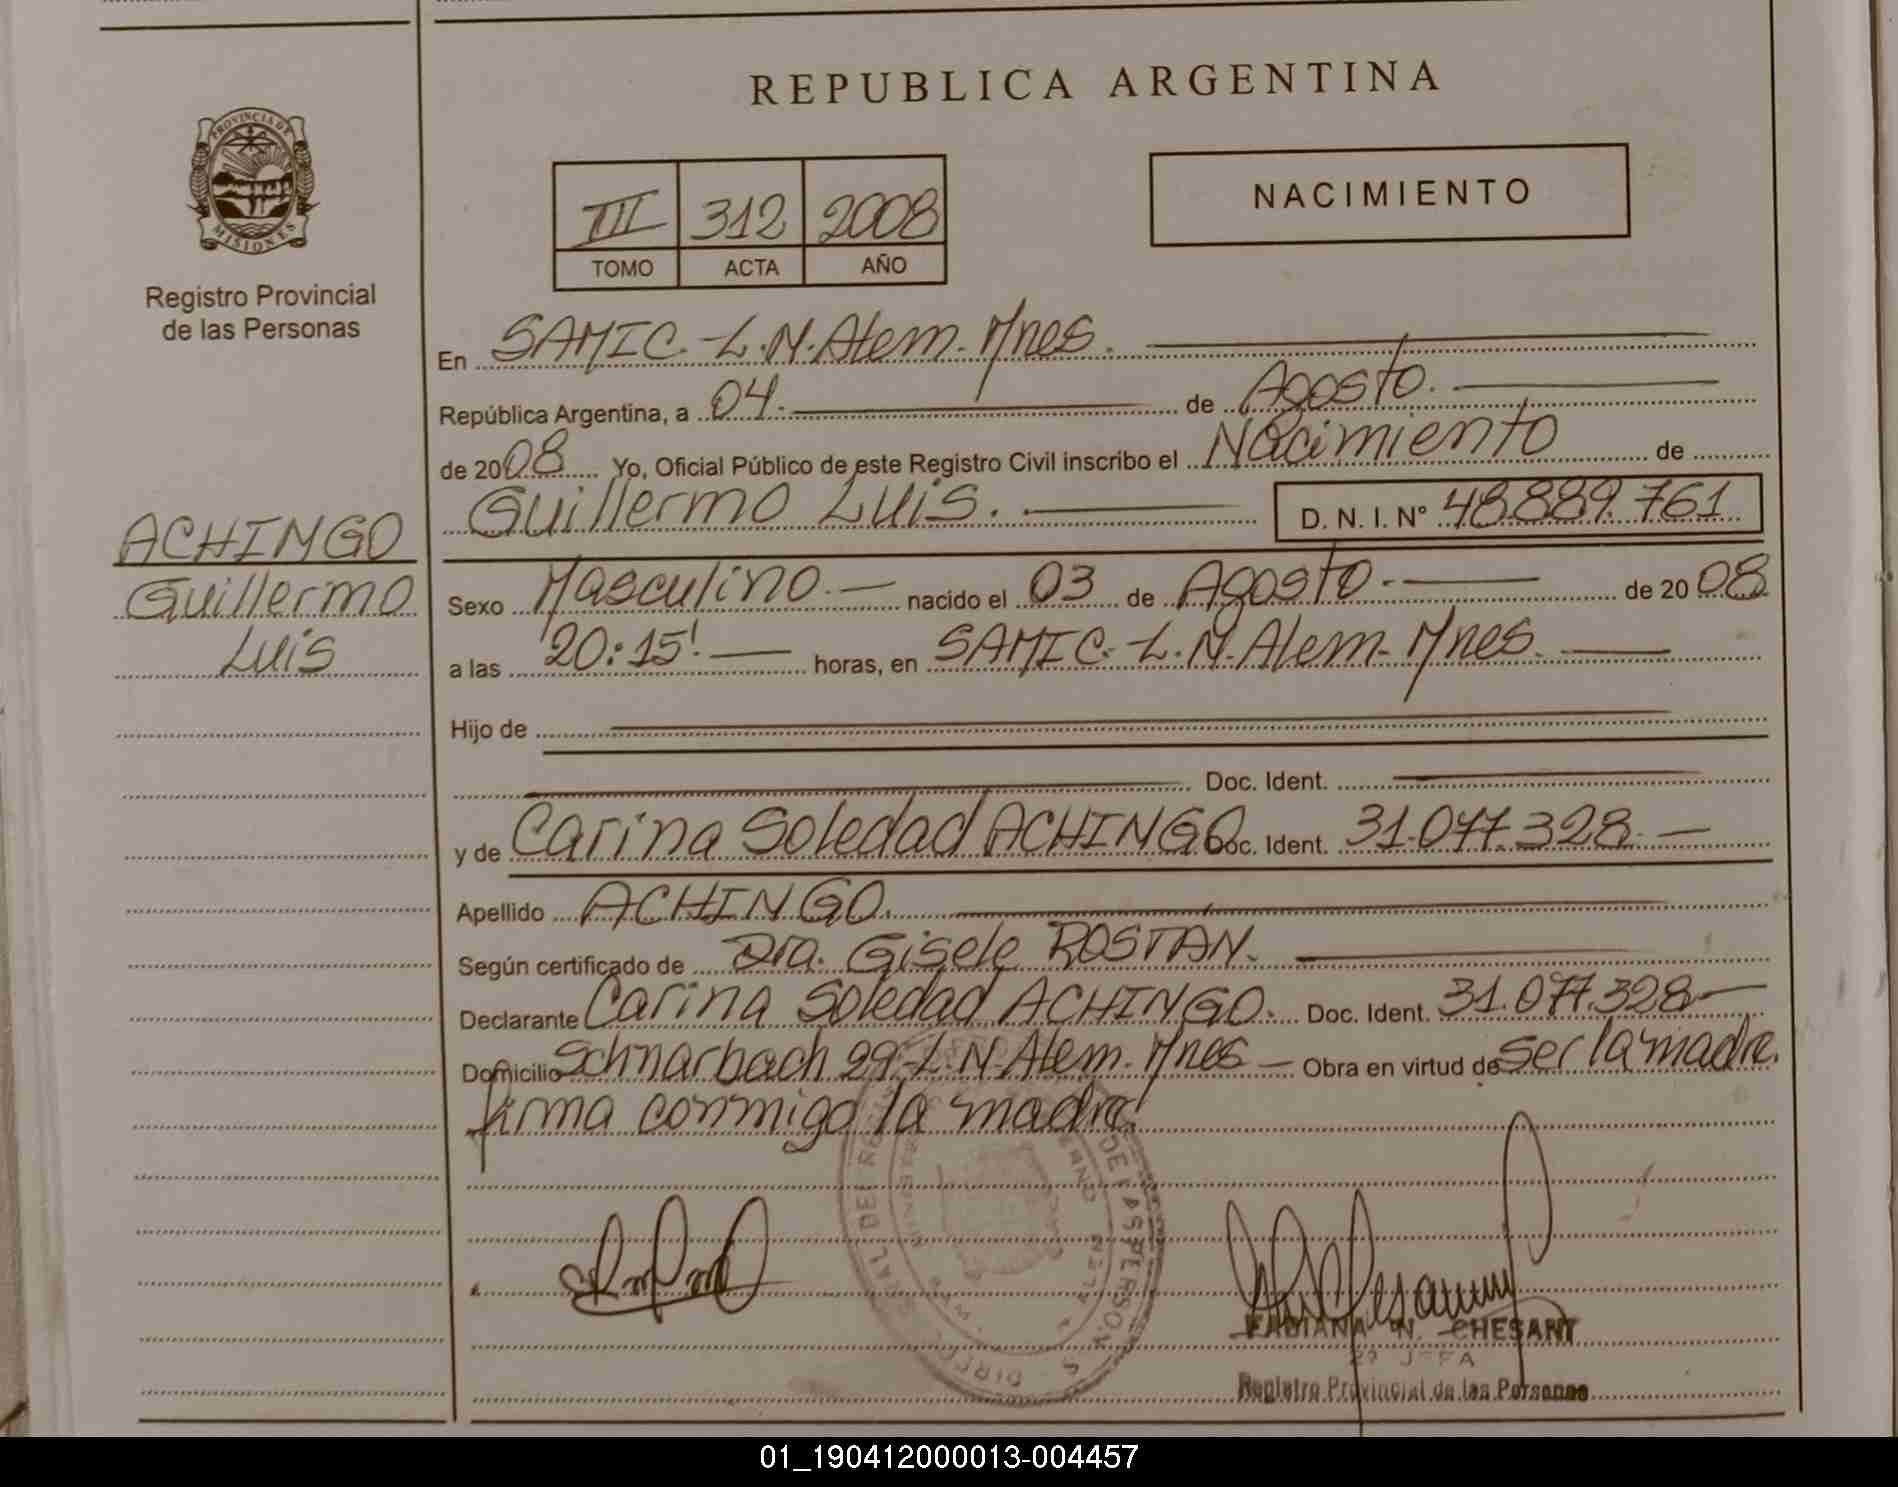 REPUBLICA ARGENTINA
PROVINCIA DE
MISIONES
Registro Provincial
de las Personas
III 312 2008
TOMO ACTA AÑO
NACIMIENTO
En SAMIC.-L.N.Alem.Mnes.
República Argentina, a 04. de Agosto.
de 2008 Yo, Oficial Público de este Registro Civil inscribo el Nacimiento de
Guillermo Luis. D. N. I. Nº 48.889.761
ACHINGO
Guillermo
Luis
Sexo Masculino.- nacido el 03 de Agosto.- de 20 08
a las 20:15' horas, en SAMIC.-L.N.Alem.Mnes.
Hijo de
Doc. Ident.
y de Carina Soledad ACHINGO Doc. Ident. 31.077.328.-
Apellido ACHINGO.
Según certificado de Dra. Gisele ROSTAN.
Declarante Carina Soledad ACHINGO. Doc. Ident. 31.077.328-
Domicilio Schnarbach 29-L.N.Alem.Mnes - Obra en virtud de ser la madre.
firma conmigo la madre.
FABIANA N. CHESANI
JEFA
Registro Provincial de las Personas
01_190412000013-004457